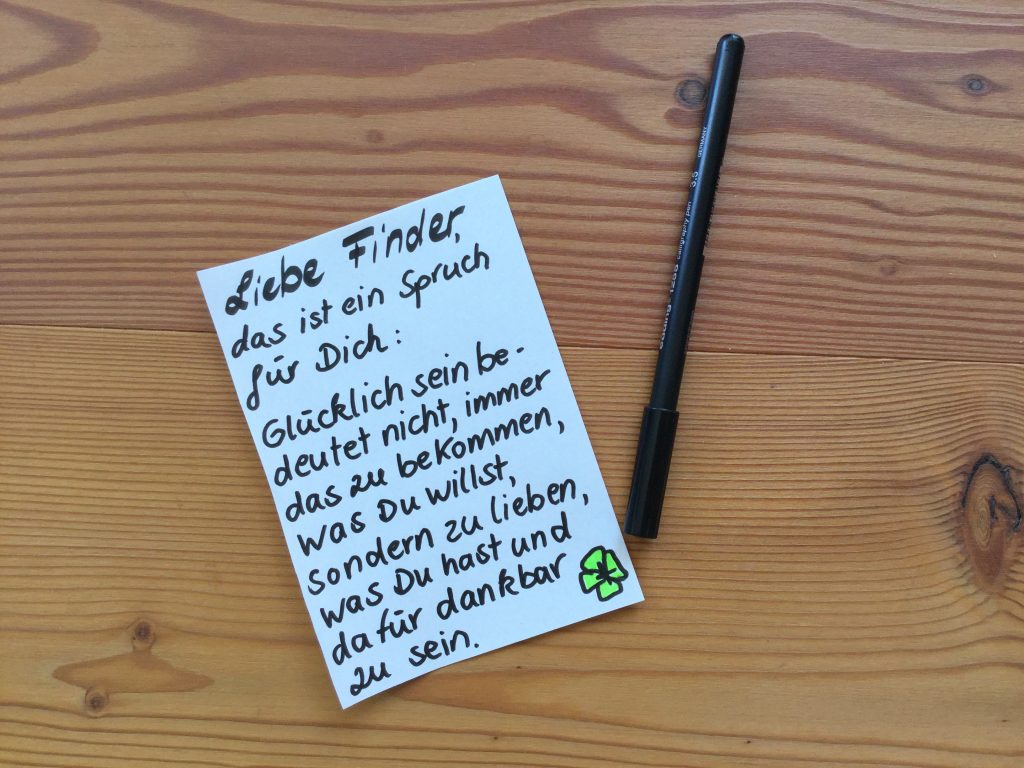 Liebe Finder,
das ist ein Spruch
für Dich:
Glücklich sein be-
deutet nicht, immer
das zu bekommen,
was Du willst,
sondern zu lieben,
was Du hast und
dafür dankbar
zu sein.
edding 1255 calligraphy pen 3.5 GERMANY